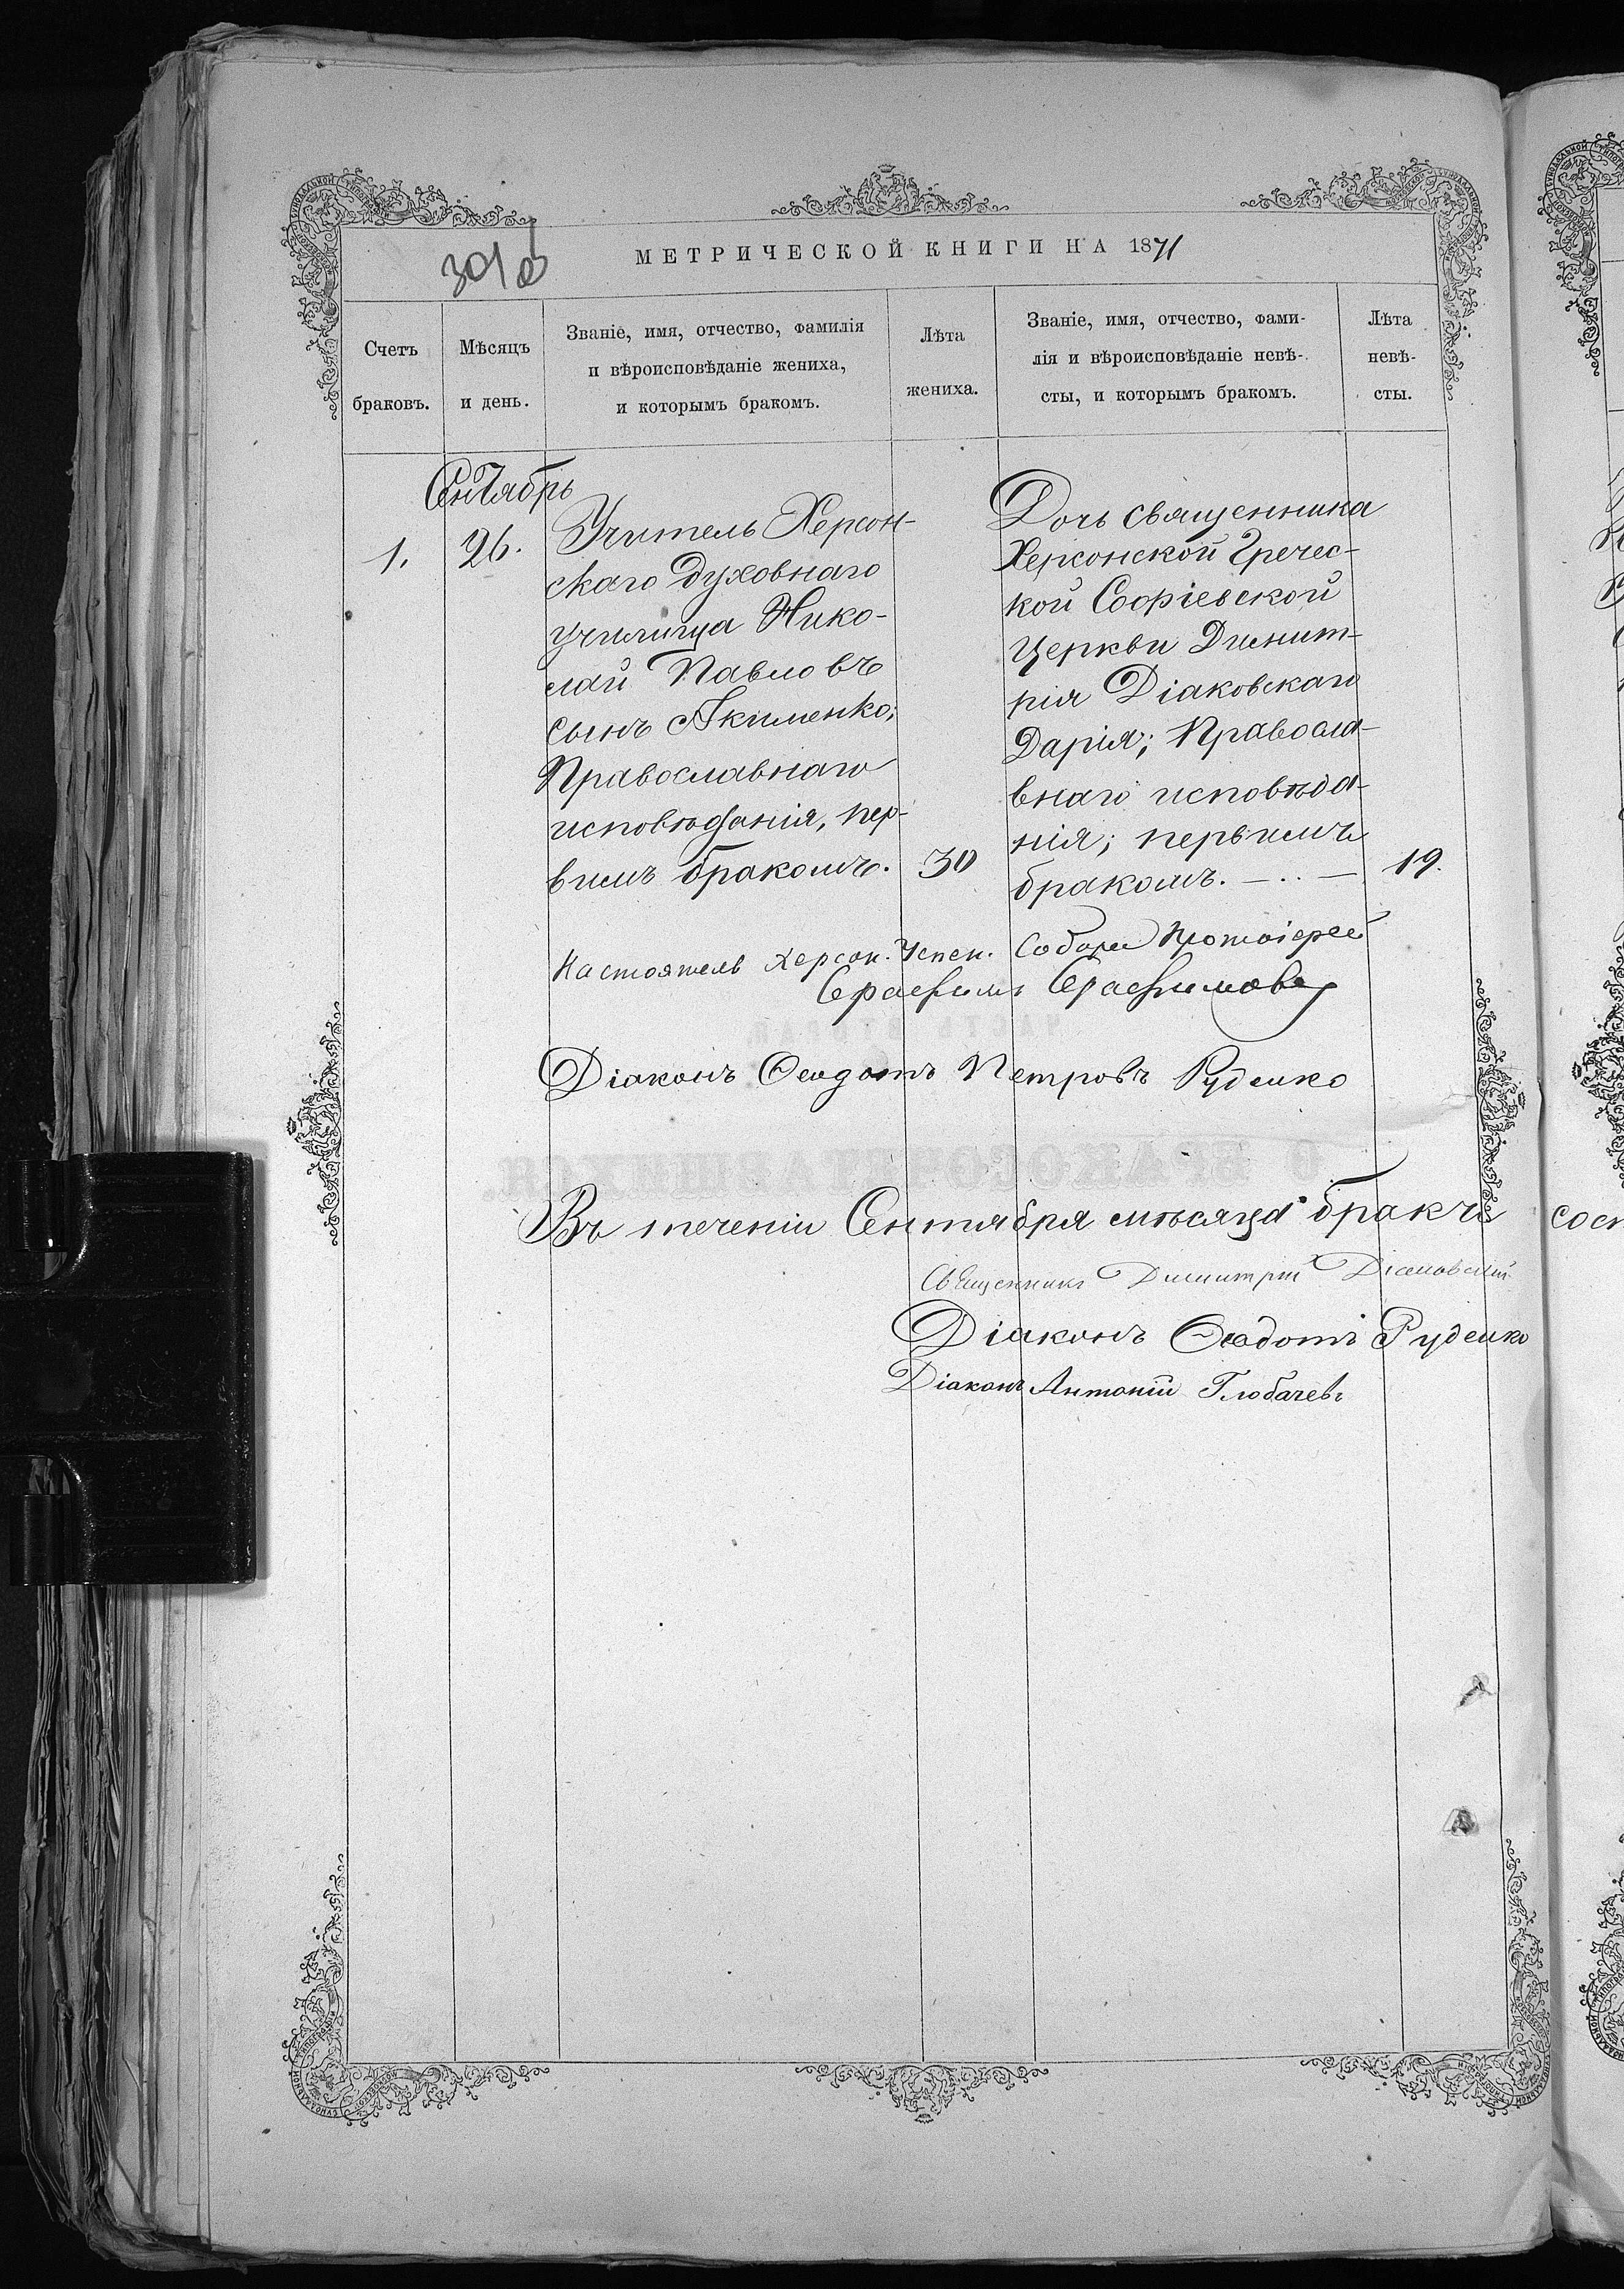 МЕТРИЧЕСКОЙ КНИГИ НА 1871
Счетъ браковъ.
Мѣсяцъ и день.
Званіе, имя, отчество, фамилія
и вѣроисповѣданіе жениха,
и которымъ бракомъ.
Лѣта жениха.
Званіе, имя, отчество, фами-
лія и вѣроисповѣданіе невѣ-
сты, и которымъ бракомъ.
Лѣта невѣ-
сты.
Сентябрь
1.
26.
Учитель Херсон-
скаго духовнаго
училища Нико-
лай Павловъ
сынъ Акименко;
Православнаго
исповѣданія, пер-
вымъ бракомъ.
30
Дочь священника
Херсонской Гречес-
кой Софіевской
Церкви Димит-
рія Діаковскаго
Дарія; Правосла-
внаго исповѣда-
нія; первымъ
бракомъ. — . . —
19.
Настоятель Херсон. Успен. Собора Протоіерей
Серафимъ Серафимовъ
Діаконъ Ѳеодотъ Петровъ Руденко
Въ теченіи Сентября мѣсяца бракъ
Священникъ Димитрій Діаковскій
Діаконъ Ѳеодотъ Руденко
Діаконъ Антоній Глобачевъ